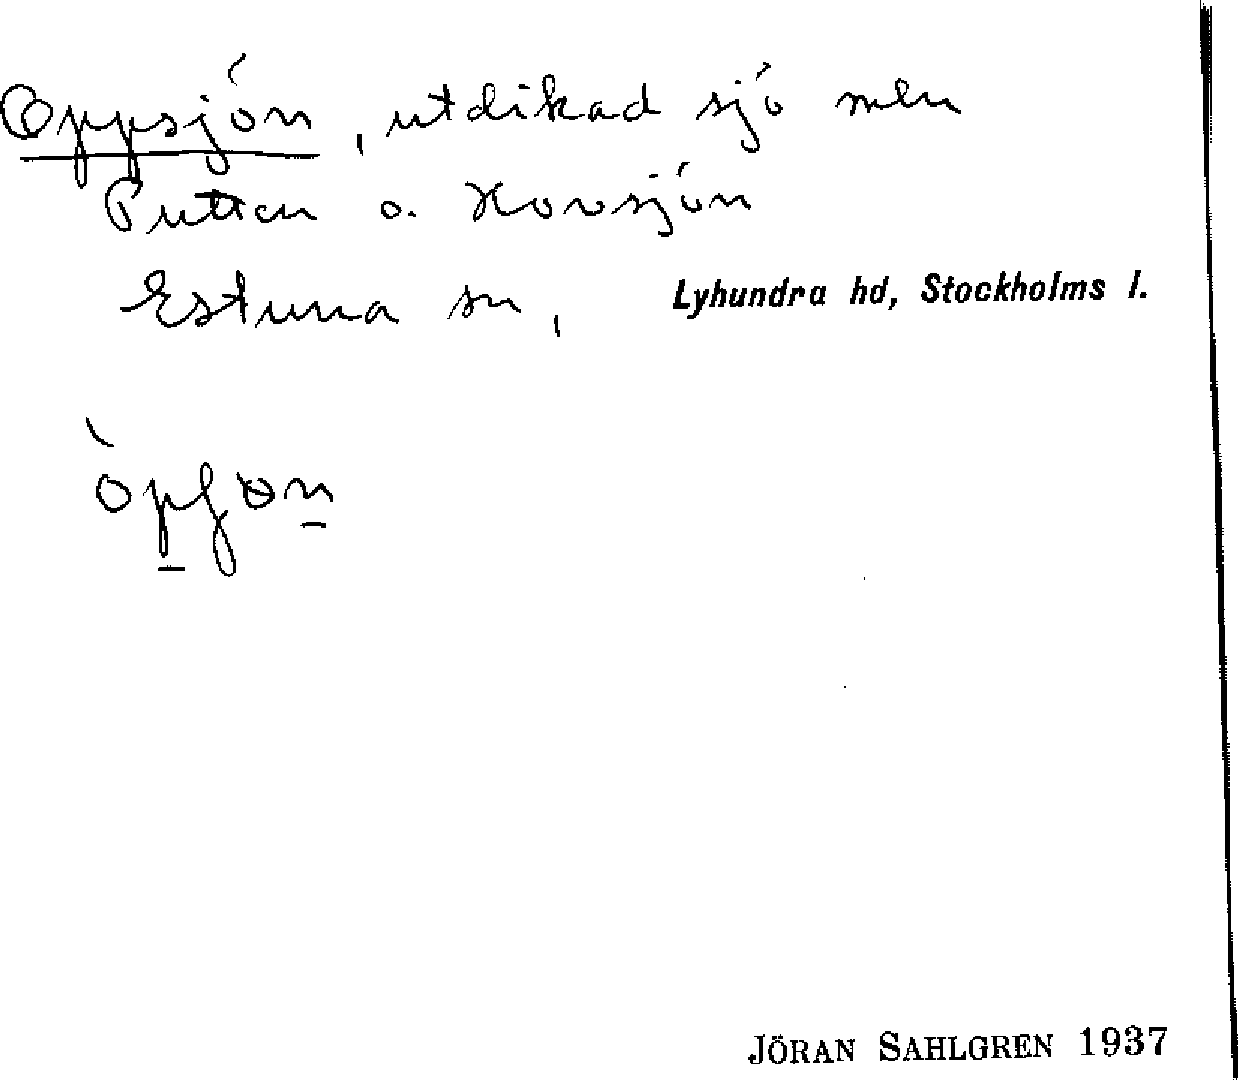 Oppsjön, utdikad sjö mlu
Putten o. Hovsjön
Estuna sn, Lyhundra hd, Stockholms l.
òpʃɷn
JÖRAN SAHLGREN 1937